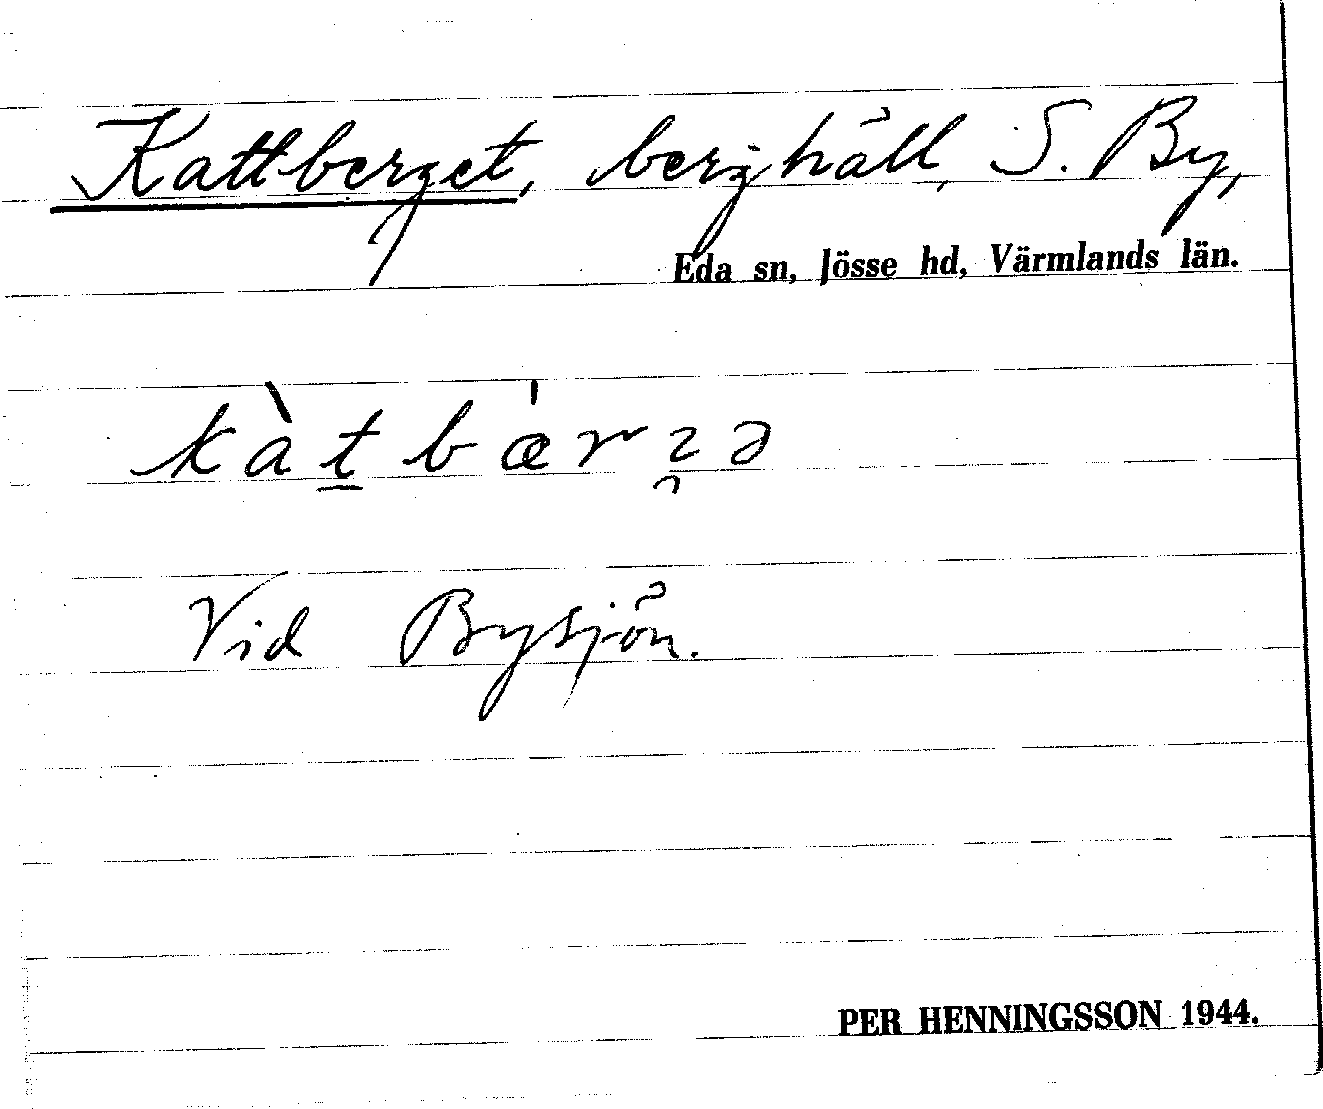 Kattberget, berghäll, S. By,
Eda sn, Jösse hd, Värmlands län.
kàt̠bæ̍rʐ̑ə
Vid Bysjön.
PER HENNINGSSON 1944.